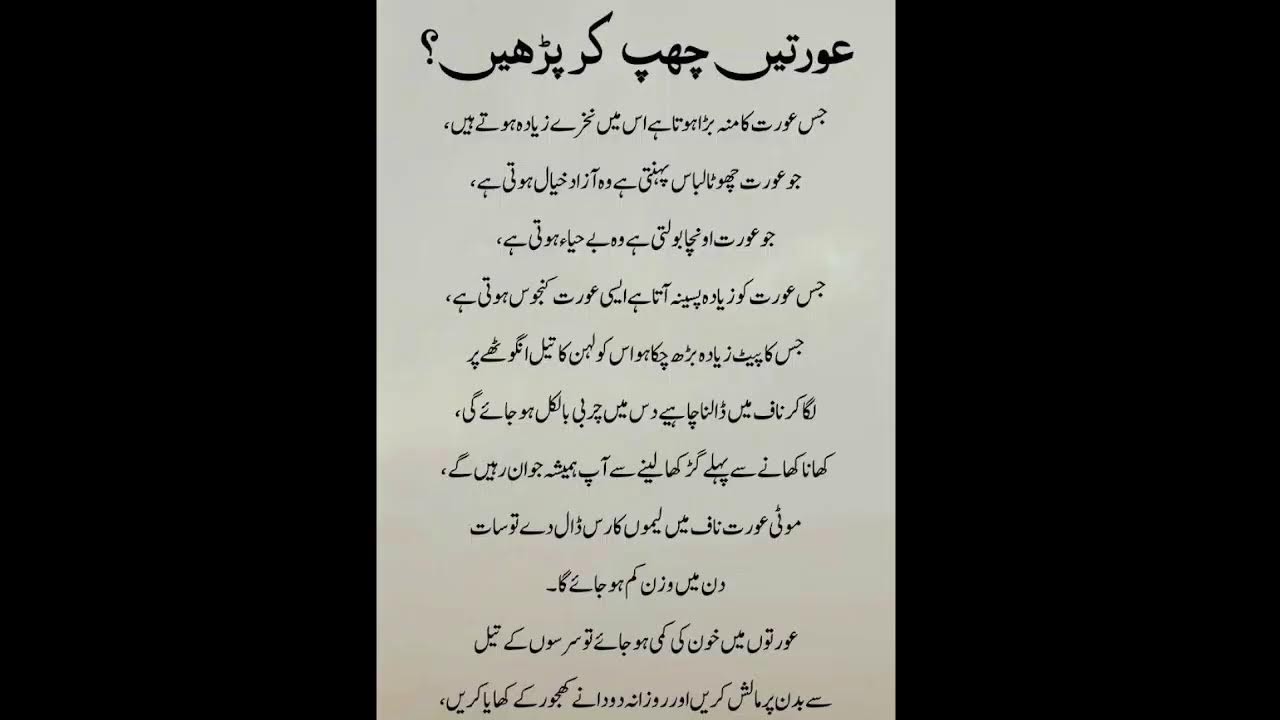 عورتیں چھپ کر پڑھیں؟
جس عورت کا منہ بڑا ہوتا ہے اس میں نخرے زیادہ ہوتے ہیں،
جو عورت چھوٹا لباس پہنتی ہے وہ آزاد خیال ہوتی ہے،
جو عورت اونچا بولتی ہے وہ بے حیاء ہوتی ہے،
جس عورت کو زیادہ پسینہ آتا ہے ایسی عورت کنجوس ہوتی ہے،
جس کا پیٹ زیادہ بڑھ چکا ہو اس کو لہن کا تیل انگوٹھے پر
لگا کر ناف میں ڈالنا چاہیے دس میں چربی بالکل ہو جائے گی،
کھانا کھانے سے پہلے گڑ کھا لینے سے آپ ہمیشہ جوان رہیں گے،
موٹی عورت ناف میں لیموں کا رس ڈال دے تو سات
دن میں وزن کم ہو جائے گا۔
عورتوں میں خون کی کمی ہو جائے تو سرسوں کے تیل
سے بدن پر مالش کریں اور روزانہ دو دانے کھجور کے کھایا کریں،